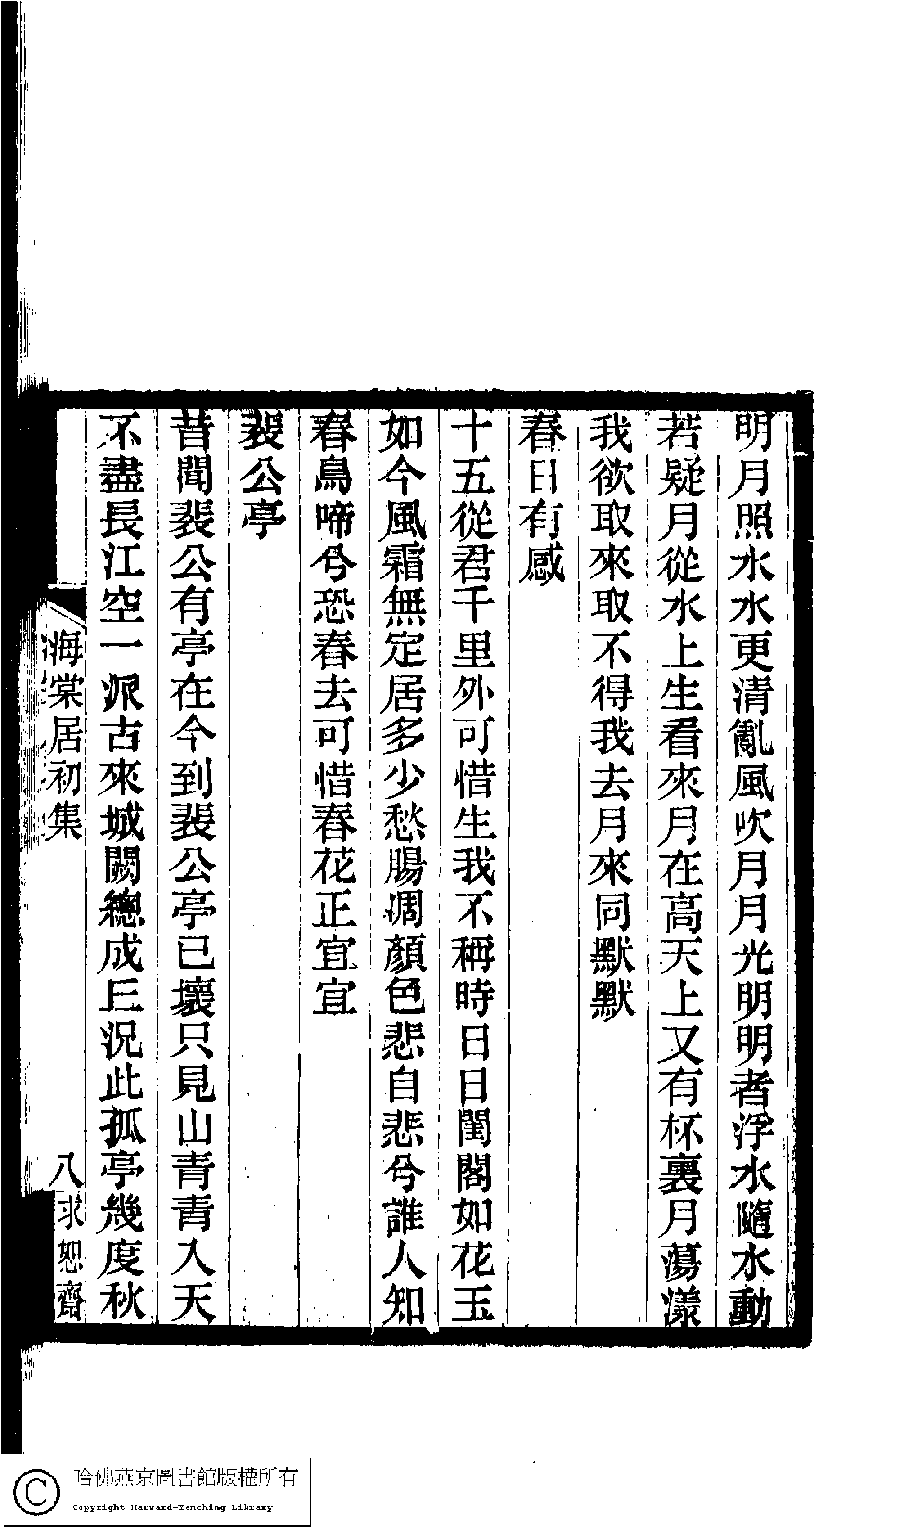 明月照水水更清亂風吹月月光明明者浮水隨水動
若疑月從水上生看來月在高天上又有杯裏月蕩漾
我欲取來取不得我去月來同默默
春日有感
十五從君千里外可惜生我不稱時日日閨閣如花玉
如今風霜無定居多少愁腸凋顏色悲自悲兮誰人知
春鳥啼兮恐春去可惜春花正宜宜
裴公亭
昔聞裴公有亭在今到裴公亭已壞只見山青青入天
不盡長江空一派古來城闕總成丘況此孤亭幾度秋
海棠居初集
八
求恕齋
哈佛燕京圖書館版權所有
Copyright Harvard-Yenching Library